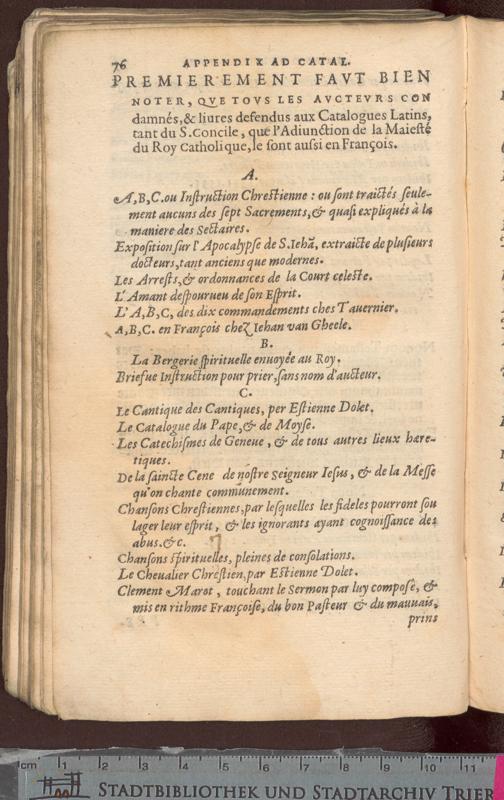 76 APPENDIX AD CATAL.
PREMIEREMENT FAVT BIEN
NOTER, QVE TOVS LES AVCTEVRS CON
damnés,& liures defendus aux Catalogues Latins,
tant du S.Concile, que l'Adiunction de la Maiesté
du Roy Catholique,le sont aussi en François.
A.
A,B,C.ou Instruction Chrestienne : ou sont traictés seule-
ment aucuns des sept Sacrements,& quasi expliqués à la
maniere des Sectaires.
Exposition sur l'Apocalypse de S.Iehã, extraicte de plusieurs
docteurs,tant anciens que modernes.
Les Arrests,& ordonnances de la Court celeste.
L'Amant despourueu de son Esprit.
L'A,B,C, des dix commandements ches Tauernier.
A,B,C. en François chez Iehan van Gheele.
B.
La Bergerie spirituelle enuoyée au Roy.
Briefue Instruction pour prier,sans nom d'aucteur.
C.
Le Cantique des Cantiques, per Estienne Dolet.
Le Catalogue du Pape,& de Moyse.
Les Catechismes de Geneue, & de tous autres lieux hære-
tiques.
De la saincte Cene de nostre Seigneur Iesus, & de la Messe
qu'on chante communement.
Chansons Chrestiennes,par lesquelles les fideles pourront sou
lager leur esprit, & les ignorants ayant cognoissance des
abus.&c.
Chansons spirituelles, pleines de consolations.
Le Cheualier Chrestien,par Estienne Dolet.
Clement Marot, touchant le Sermon par luy composé, &
mis en rithme Françoise, du bon Pasteur & du mauuais,
prins
cm 1 2 3 4 5 6 7 8 9 10 11
STADTBIBLIOTHEK UND STADTARCHIV TRIER